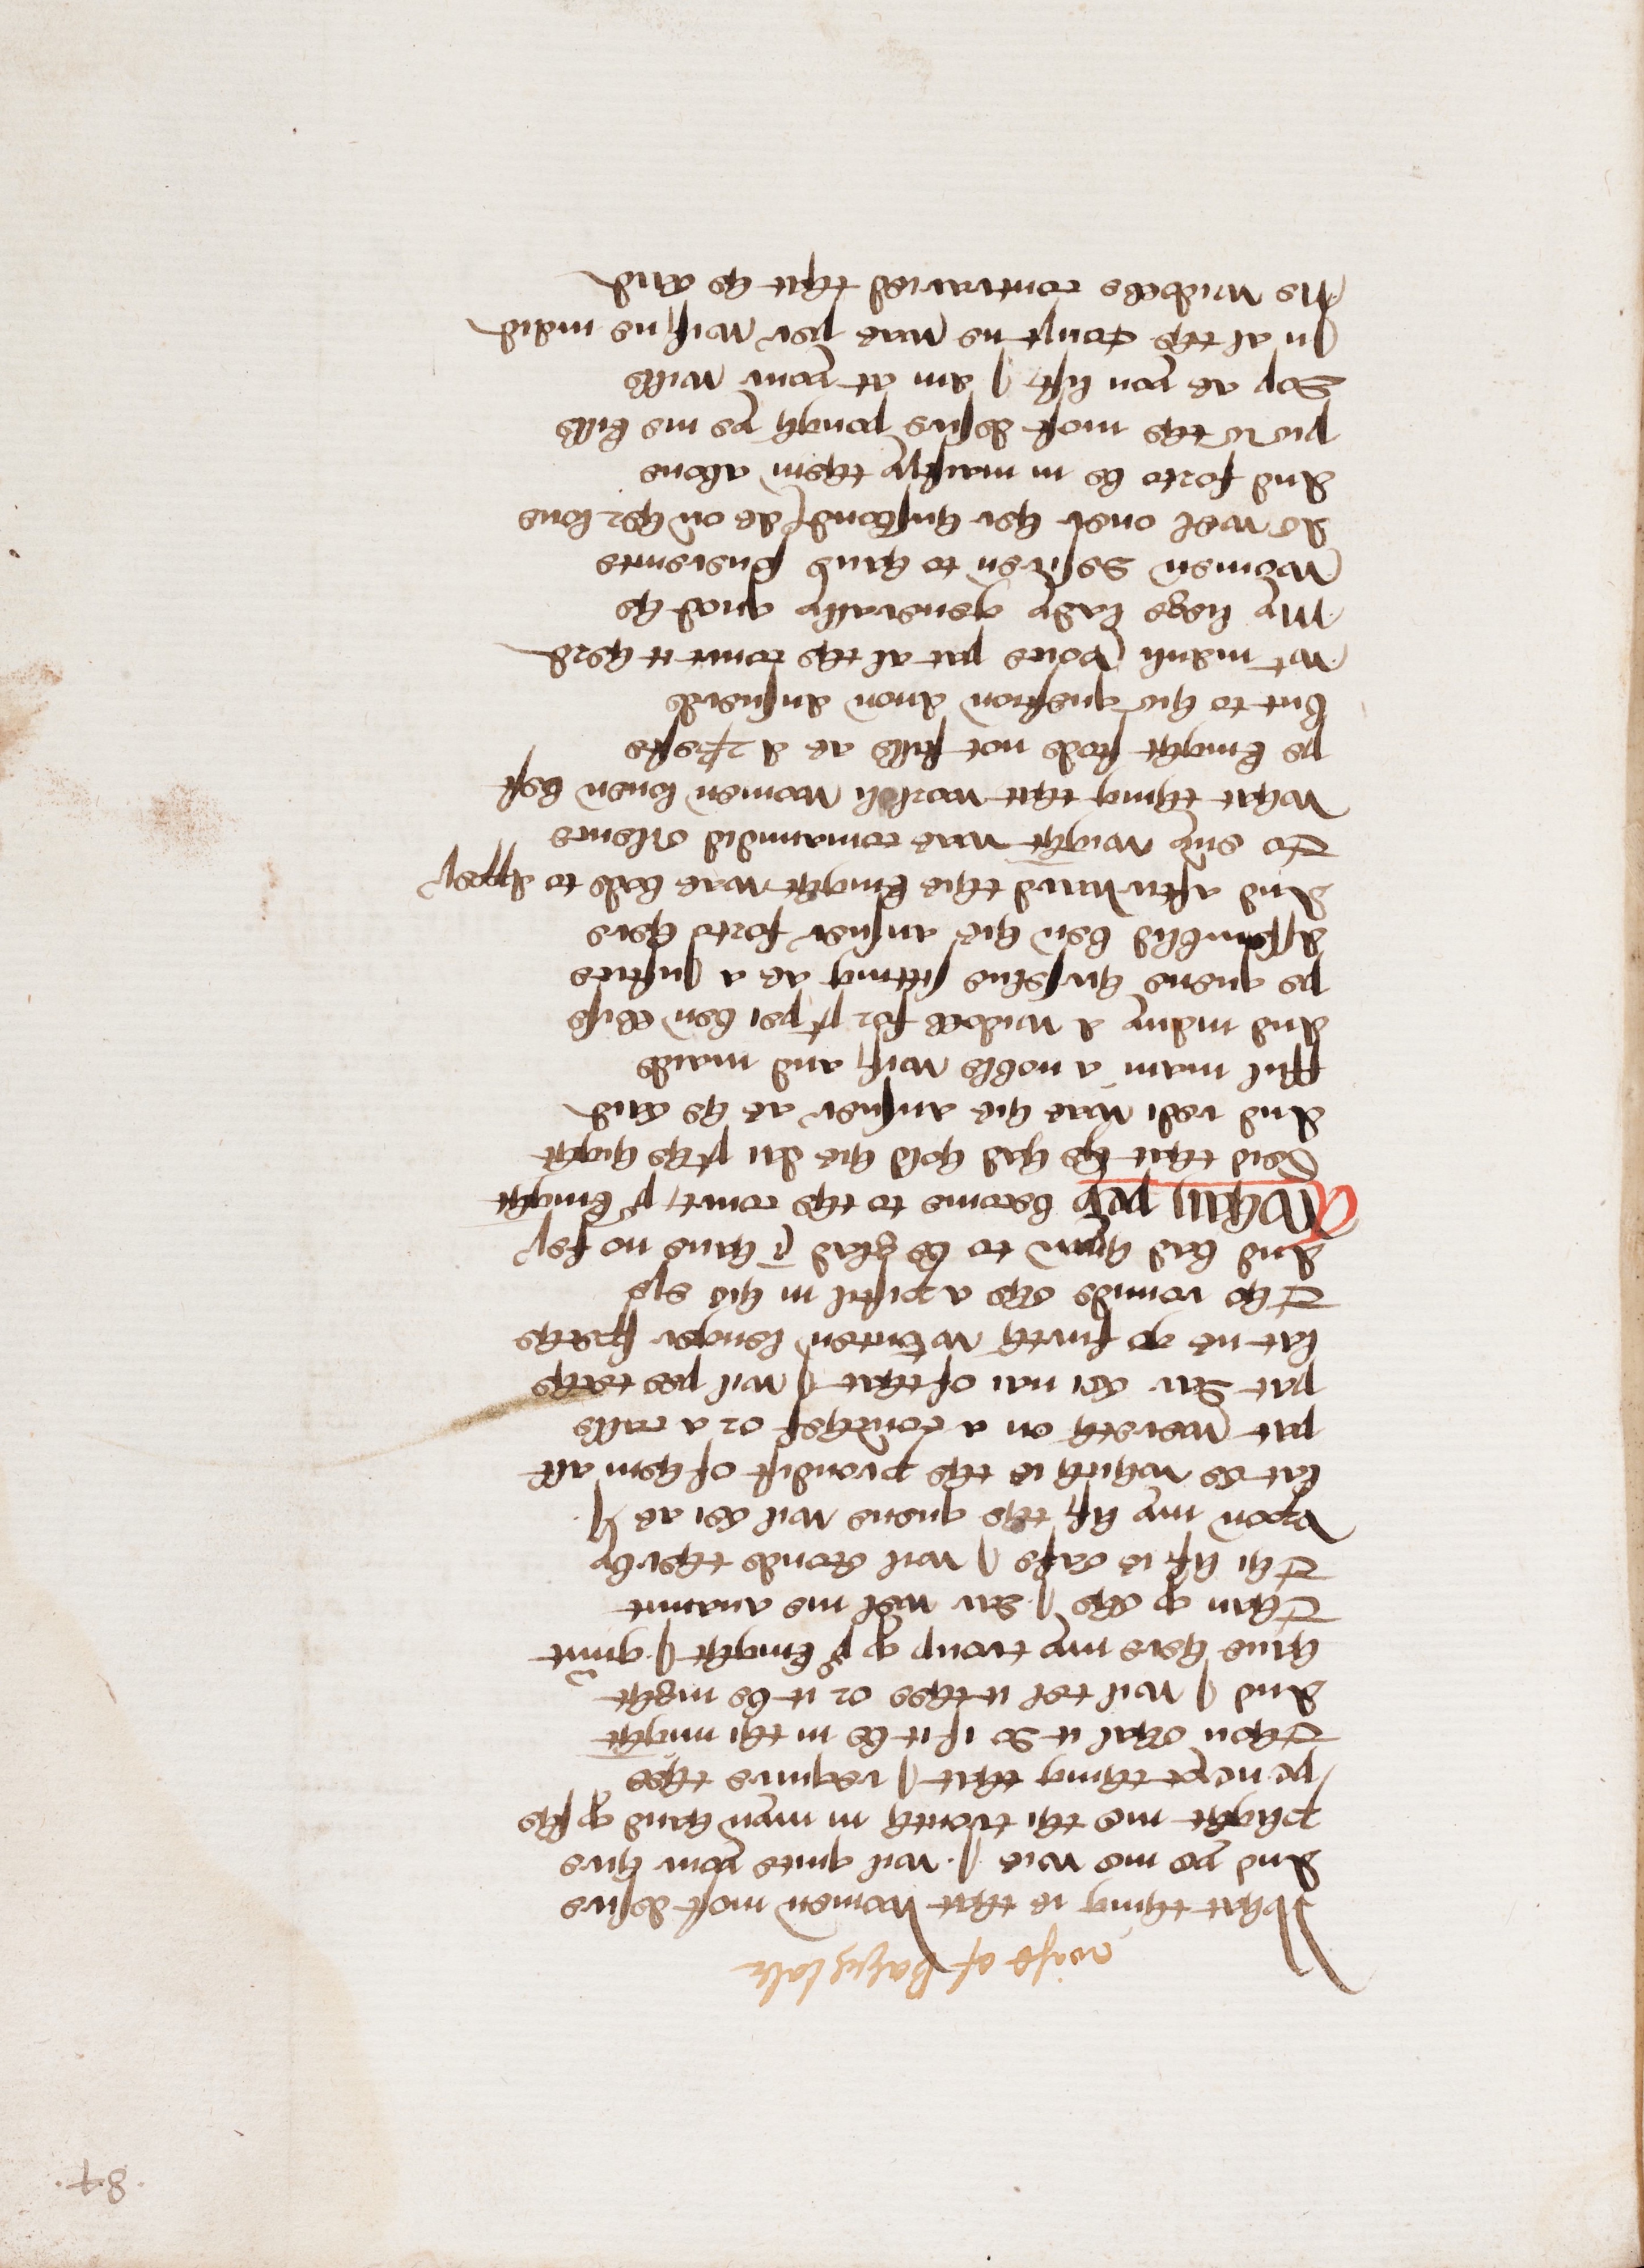 .84.
wife of Bathes tale
What thing is that women most desire
And ye me wis .I. wil quite your hire
Plight me thi trouth in myn hand qd she
Þe next thing that I require thee
Thou shal it do if it be in thi might
And I wil tel it thee or it be night
Haue here my trouþ qd þe knight I. graunt
Than qd she I. dar wel me auaunt
Thi lif is safe I wil stonde therby
Vpon my lif the quene wil sei as I.
Lat se which is the proudist of hem all
Þat wereth on a couerchef or a calle
Þat dar sei nai of that I wil þee teche
Lat us go furth wtouten lenger speche
Tho rounde she a pistil in his ere
And bad hym to be glad & haue no fer
Whan þey be come to the court, þe knight
Seid that he had hold his dai as he hight
And redi was his answer as he said
Fful mani a noble wif and maide
And many a widow for þt þei ben wise
Þe quene hirselue sitting as a Iustice
Assemblid ben his answer forto here
And aftirward this knight was bode to apper
To eury wight was comaundid silence
What thing that worldli women louen best
Þe knight stode not stille as a best
But to his question anon answerde
Wt manli voice þat al the court it herd
My liege lady generally quod he
Women desiren to haue souereinte
As wel ouer her husbond as on her loue
And forto be in maistry them aboue
Þis is the most desire þough ye me kille
Doþ as you list, I am at your wille
In al the court ne was þer wif, ne maid
Ne widowe contraried that he said